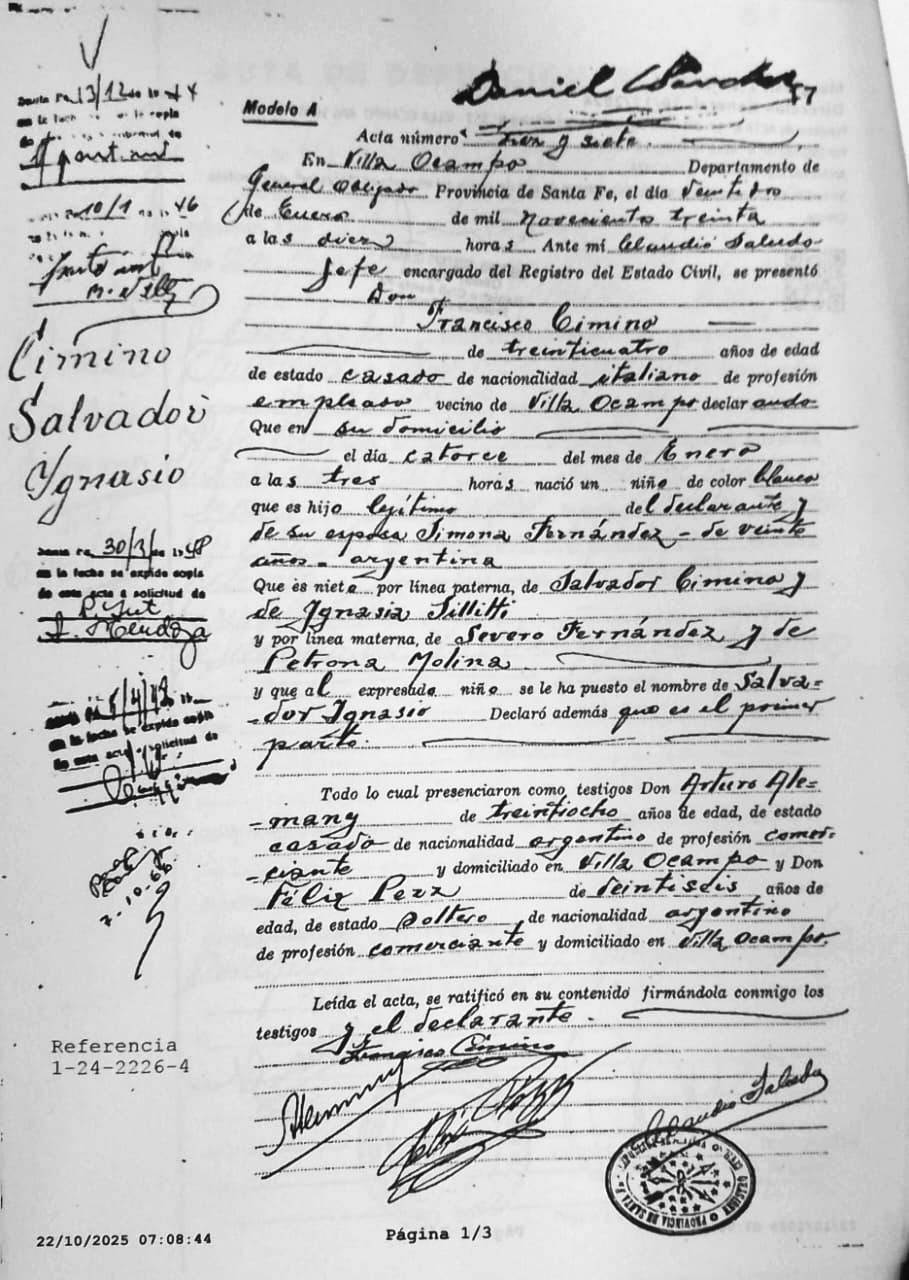 Daniel Sanchez
17
Modelo A
Acta número Diez y siete.
En Villa Ocampo Departamento de
General Obligado Provincia de Santa Fe, el día Veintidos
de Enero de mil Novecientos treinta
a las diez horas Ante mi Claudio Saludo
Jefe encargado del Registro del Estado Civil, se presentó
Don
Francisco Cimino
de treinticuatro años de edad
de estado casado de nacionalidad italiano de profesión
empleado vecino de Villa Ocampo declarando
Que en su domicilio
el día catorce del mes de Enero
a las tres horas nació un niño de color blanco
que es hijo legítimo del declarante y
de su esposa Simona Fernández - de veinte
años - argentina
Que es nieto por línea paterna, de Salvador Cimino y
de Ignasia Sillitti
y por línea materna, de Severo Fernández y de
Petrona Molina
y que al expresado niño se le ha puesto el nombre de Salva-
-dor Ignasio Declaró además que es el primer
parto.
Todo lo cual presenciaron como testigos Don Arturo Ale-
-many de treintiocho años de edad, de estado
casado de nacionalidad argentino de profesión comer-
-ciante y domiciliado en Villa Ocampo y Don
Félix Pezz de veintiseis años de
edad, de estado soltero de nacionalidad argentino
de profesión comerciante y domiciliado en Villa Ocampo.
Leída el acta, se ratificó en su contenido firmándola conmigo los
testigos y el declarante.
Francisco Cimino
Claudio Saludo
13/12 44
10/1 46
Cimino
Salvador
Ygnasio
Santa Fe 30/3/ de 1948
en la fecha se expide copia
de esta acta a solicitud de
Mendoza
5/4/48
en la fecha se expide copia
de esta acta a solicitud de
7-10-66
Referencia
1-24-2226-4
PROVINCIA DE SANTA FE
22/10/2025 07:08:44
Página 1/3